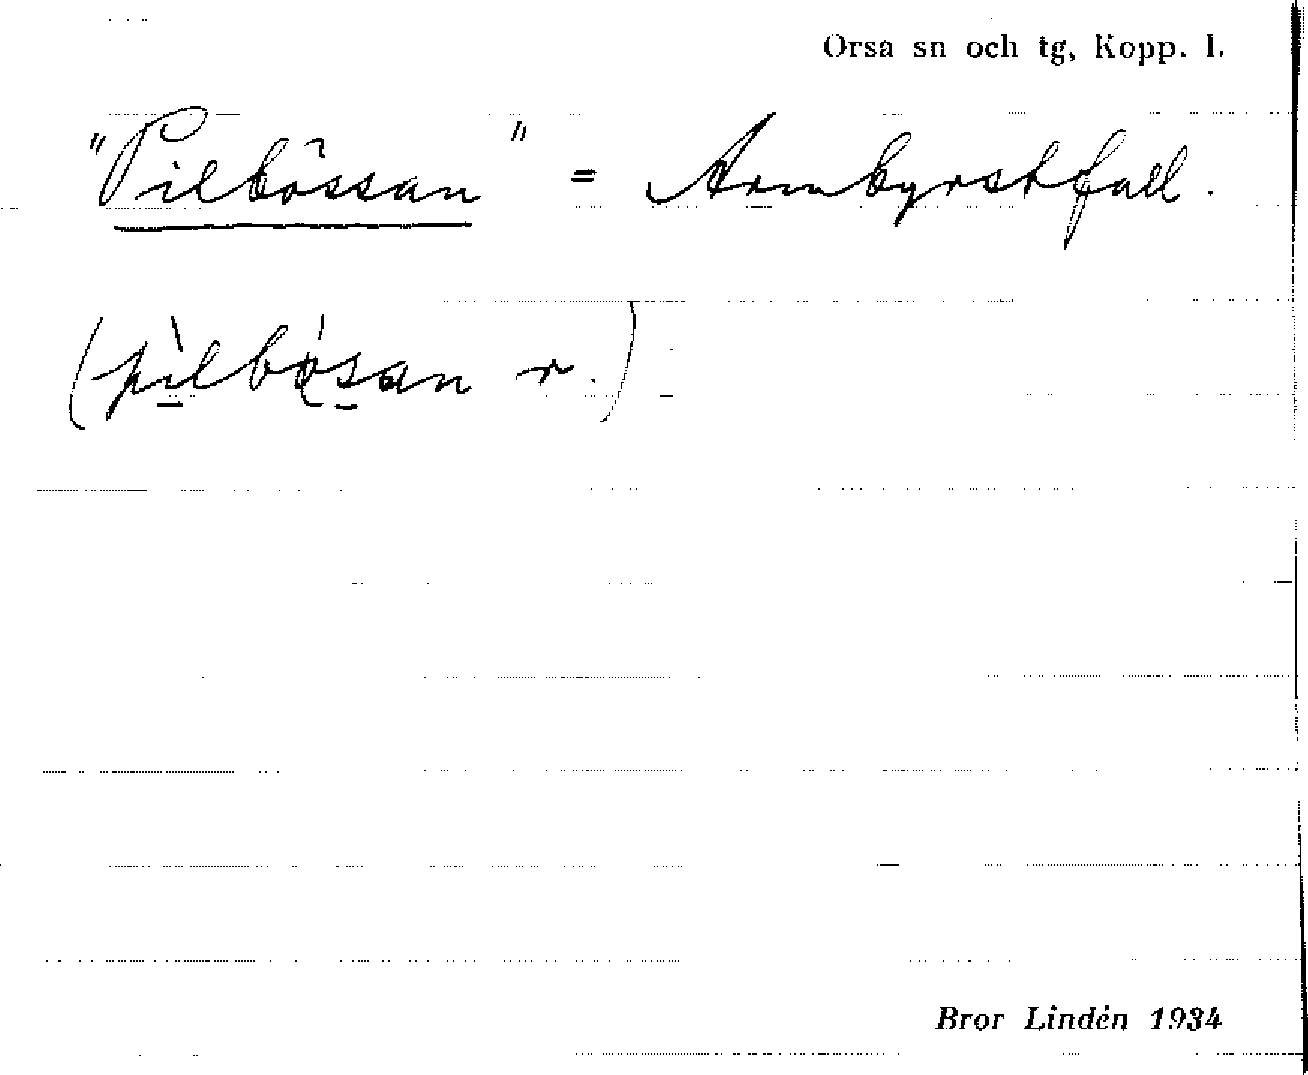 Orsa sn och tg, Kopp. l.
"Pilbössan" = Armbyrstfall.
(pilbösan r.)
Bror Lindén 1934